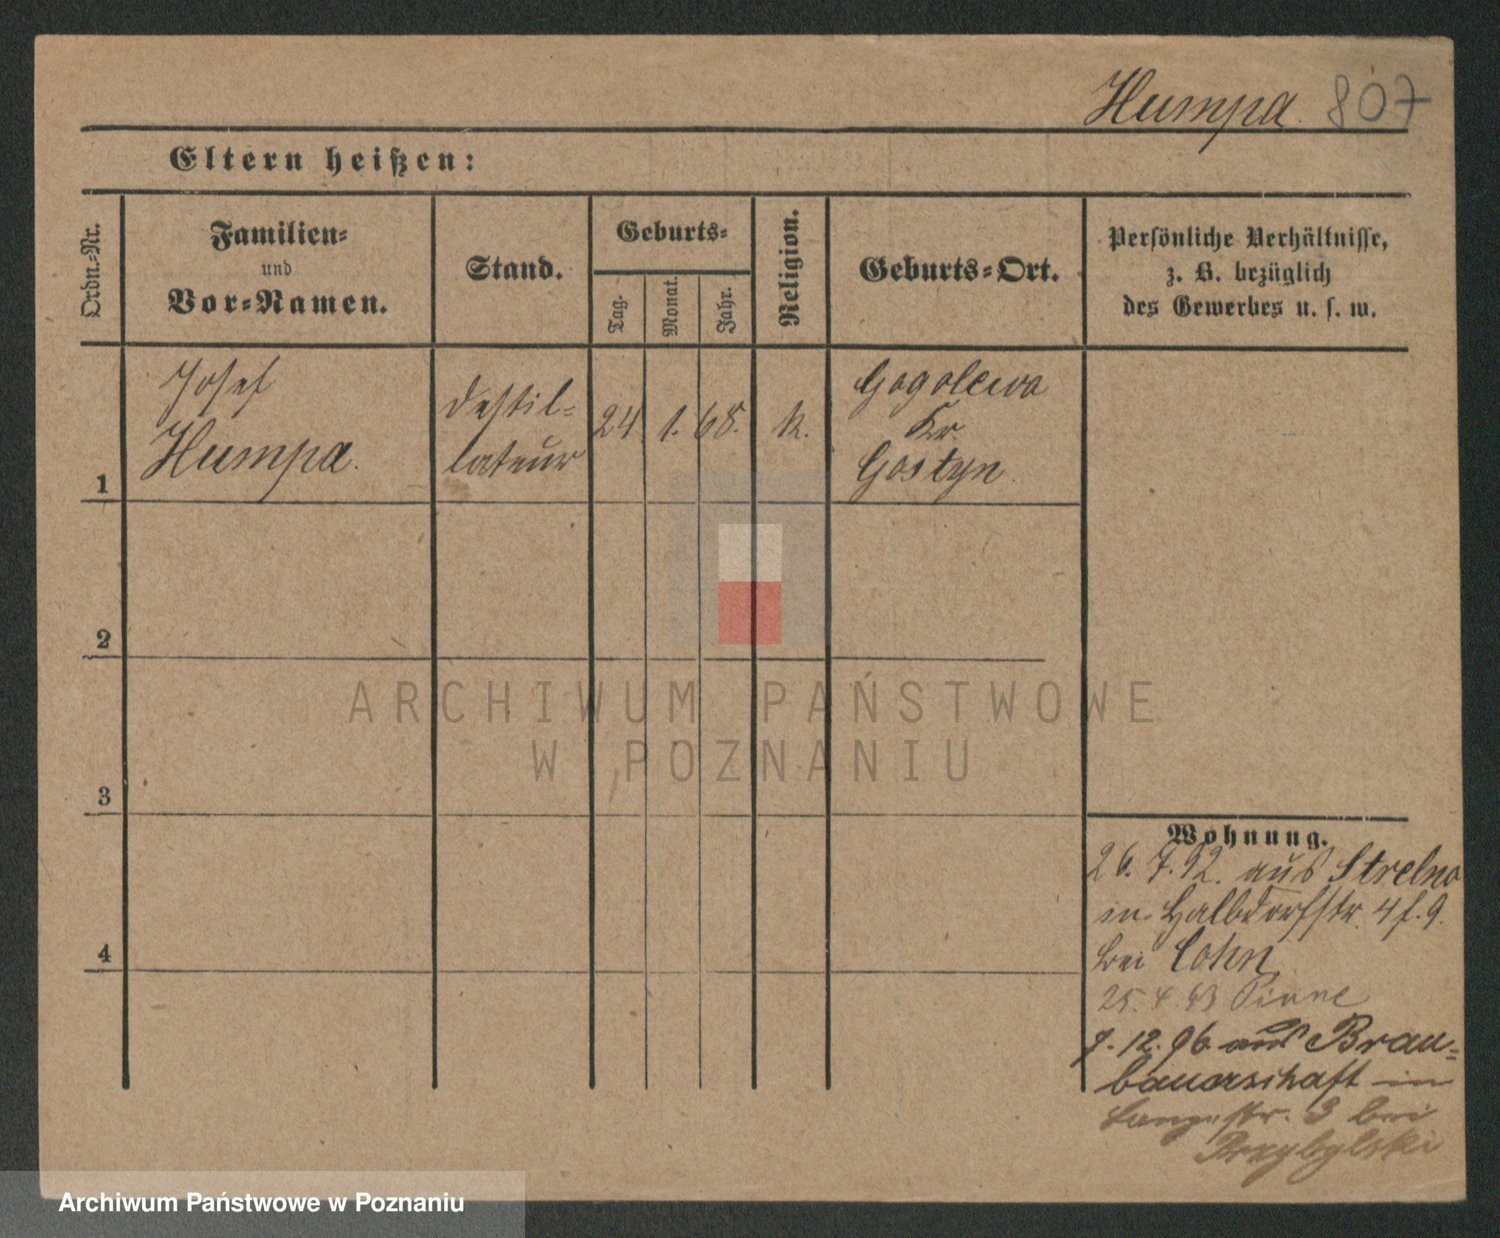 Humpa. 807
Eltern heißen:
Ordn.-Nr.
Familien-
und
Vor-Namen.
Stand.
Geburts-
Tag.
Monat.
Jahr.
Religion.
Geburts-Ort.
Persönliche Verhältnisse,
z. B. bezüglich
des Gewerbes u. s. w.
1
Josef
Humpa.
Destil-
lateur
24. 1. 68.
k.
Gogolewo
Kr.
Gostyn.
2
3
4
Wohnung.
26. 7. 92. aus Strelno
in Halbdorfstr. 4 f. 9.
bei Cohn
25. 4. 93 Pinne
7. 12. 96 aus Brau-
bauerschaft in
Langestr. 3 bei
Przybylski
ARCHIWUM PAŃSTWOWE
W POZNANIU
Archiwum Państwowe w Poznaniu